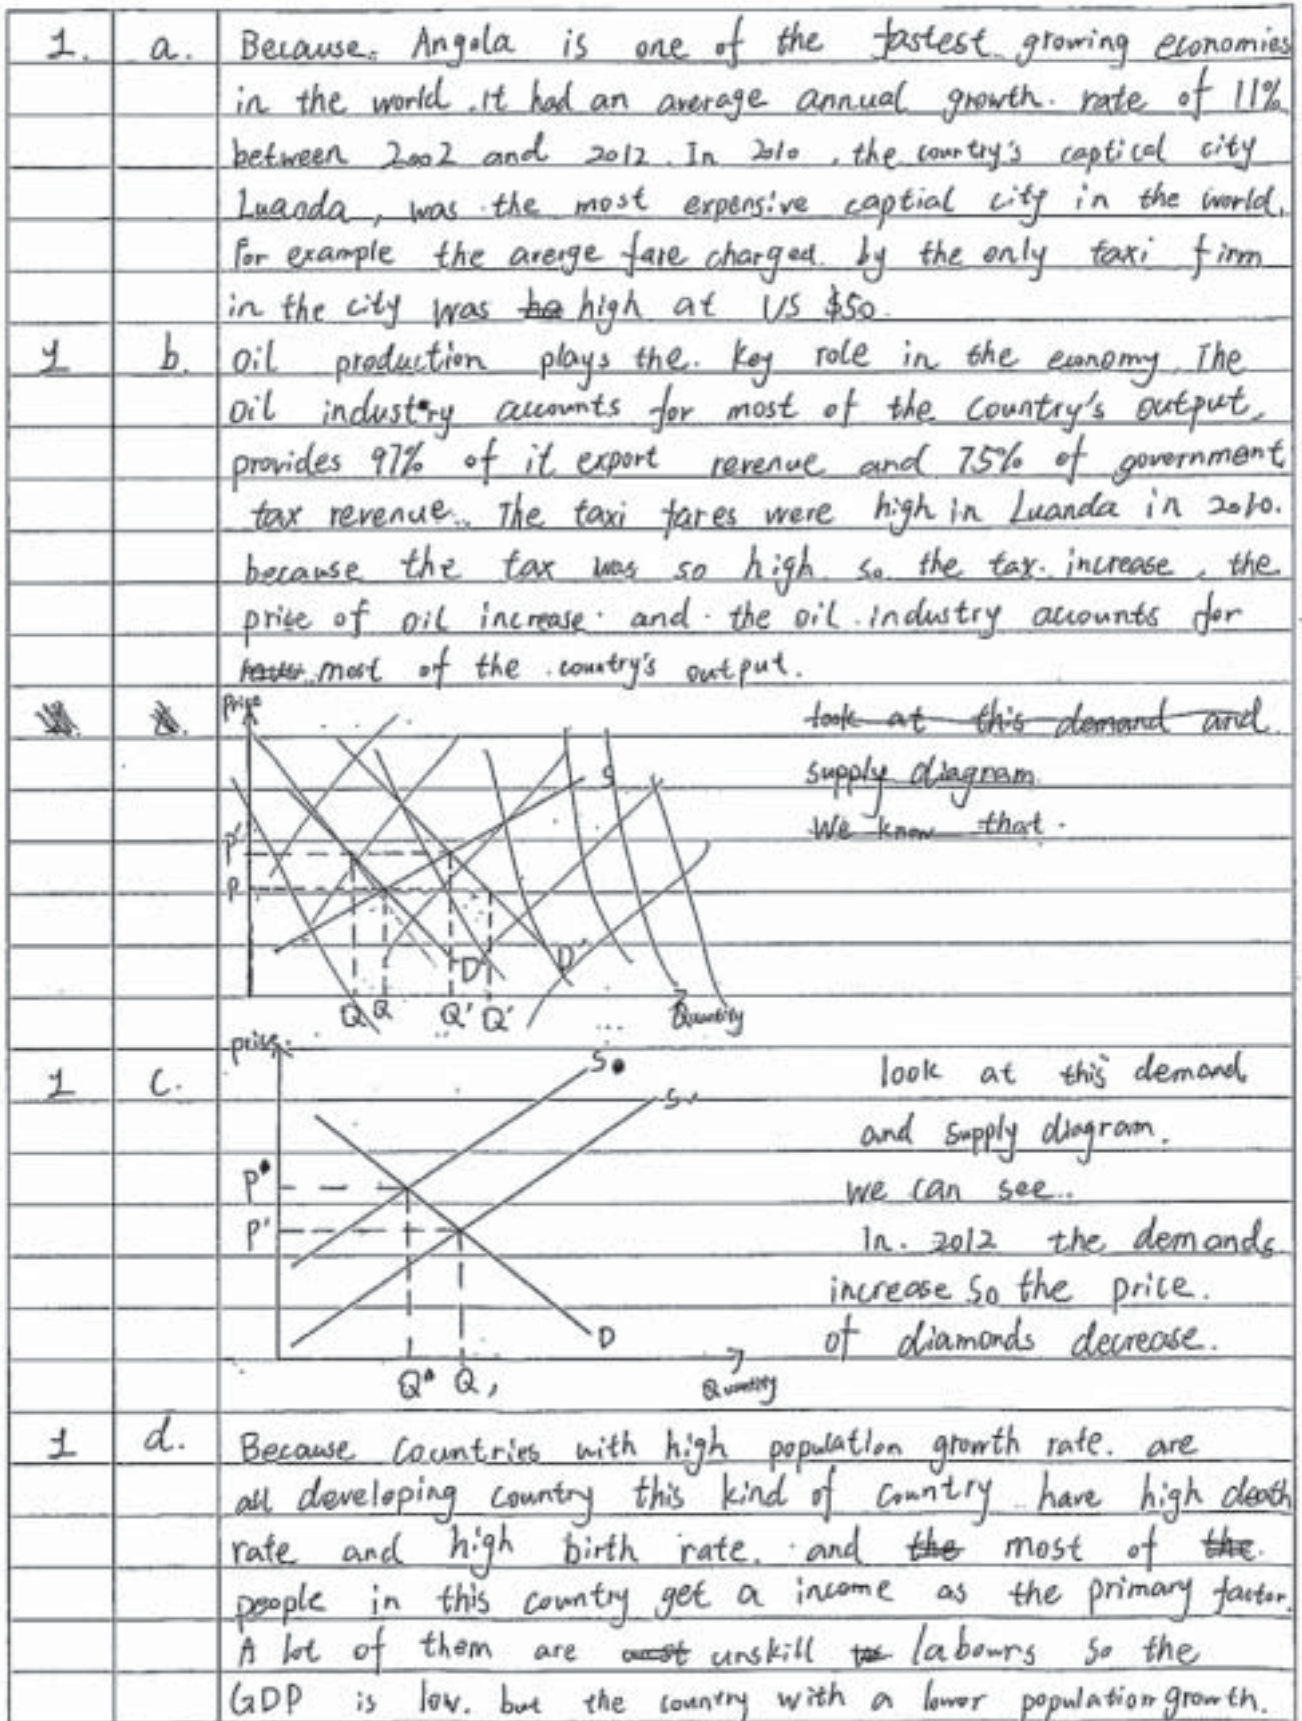 1. a. Because. Angola is one of the fastest growing economies
in the world. It had an average annual growth. rate of 11%
between 2002 and 2012. In 2010, the country's captical city
Luanda, was the most expensive captial city in the world.
For example the arerge fare charged. by the only taxi firm
in the city was high at US $50.
1 b. Oil production plays the. key role in the economy. The
oil industry accounts for most of the country's output,
provides 97% of it export revenue and 75% of government
tax revenue. The taxi fares were high in Luanda in 2010.
because the tax was so high. so the tax. increase, the
price of oil increase. and the oil industry accounts for
most of the country's output.
price
look at this demand and
supply diagram
We know that.
S
P'
P
D D'
Q Q Q' Q' Quantity
price
1 c. S
S'
look at this demand
and supply diagram.
we can see..
In. 2012 the demands
increase so the price.
of diamonds decrease.
P
P'
D
Q Q, Quantity
1 d. Because countries with high population growth rate. are
all developing country this kind of country have high death
rate and high birth rate. and the most of the.
people in this country get a income as the primary factor.
A lot of them are unskill labours so the
GDP is low. but the country with a lower population growth.